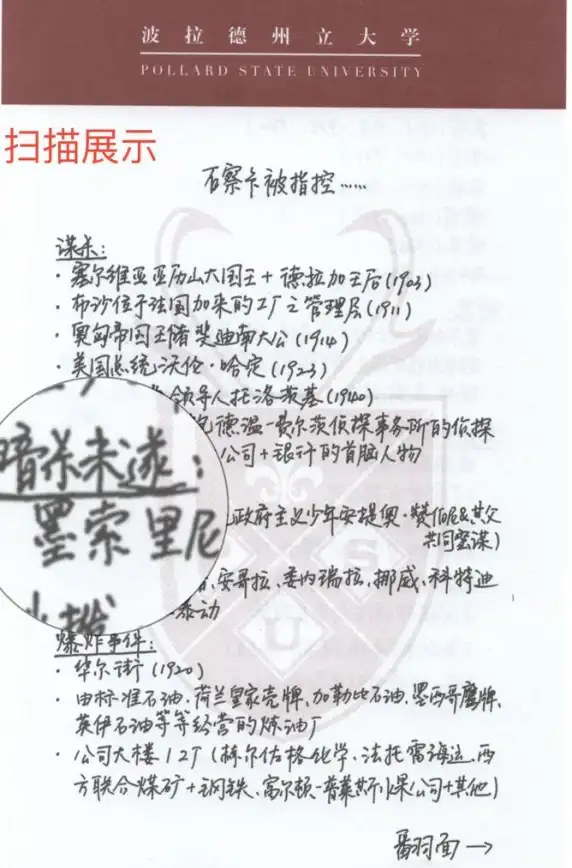 波拉德州立大学
POLLARD STATE UNIVERSITY
扫描展示
石察卡被指控……
谋杀：
· 塞尔维亚亚历山大国王+德拉加王后(1903)
· 布沙位于法国加来的工厂之管理层(1911)
· 奥匈帝国王储斐迪南大公(1914)
· 美国总统沃伦·哈定(1923)
领导人托洛茨基(1940)
德温-费尔茨侦探事务所的侦探
公司+银行的首脑人物
暗杀未遂：
墨索里尼
政府主义少年安提奥·赞伯尼&其父
共同密谋)
安哥拉、委内瑞拉、挪威、科特迪
泰动
爆炸事件：
· 华尔街(1920)
· 由标准石油、荷兰皇家壳牌、加勒比石油、墨西哥鹰牌、
英伊石油等等经营的炼油厂
· 公司大楼12厅(赫尔佑格化学、法托雷海运、西
方联合煤矿+钢铁、富尔顿-普莱斯爆公司+其他)
翻面→
P S U